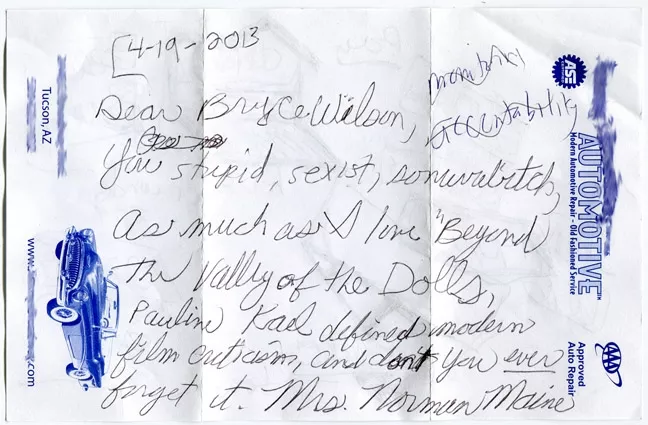 [4-19-2013
Dear Bryce Wilson,
You stupid, sexist, somuvabitch,
As much as I love "Beyond
The Valley of the Dolls,
Pauline Kael defined modern
film criticism, and don't you ever
forget it. Mrs. Norman Maine
Tucson, AZ
www.
.com
ASE
AUTOMOTIVE
Modern Automotive Repair - Old Fashioned Service
AAA
Approved
Auto Repair